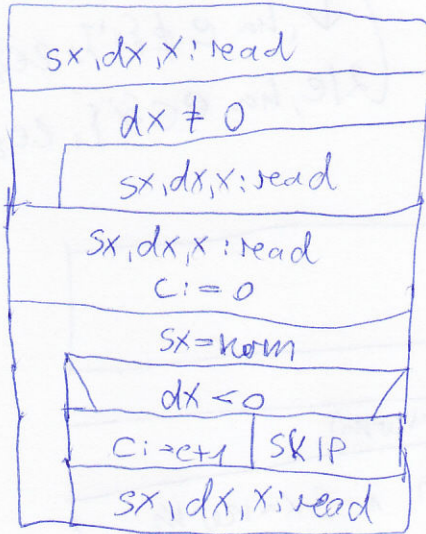 sx,dx,x:read
dx ≠ 0
sx,dx,x:read
sx,dx,x:read
c:=0
sx=norm
dx<0
c:=c+1 SKIP
sx,dx,x:read